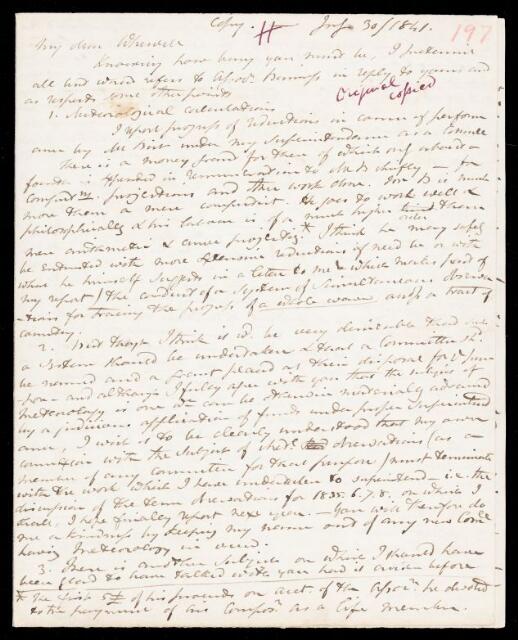 Copy. July 30/1841.
197
My dear Whewell
Knowing how busy you must be, I
all and would refer to Assocn. Business in reply to yours and
as respects some other points
Original copied
1. Meteorological calculations
I report progress of reductions in course of perform
ance by Mr Birt under my Superintendence as a Committee
There is a money fund for them of which only about a
fourth is expended in remuneration to Mr B chiefly — for
computns. projections and other work done. Mr B is much
more than a mere computist. He goes to work well &
philosophically & his labour is of a much higher kind order than
mere arithmetic & curve projectg.* I think he may safely
be entrusted with more extensive reductions if need be or with
what he himself suggests in a letter to me (which makes part of
my report) the conduct of a System of Simultaneous Observa-
tions for tracing the progress of a whole wave across a tract of
country.
2. But tho' I think it wd. be very desirable that such
a System should be undertaken & that a Committee shd.
be named and a grant placed at their disposal for ye. purp
pose — and although I fully agree with you that the subject of
Meteorology is one wh. can be materially advanced
by a judicious application of funds under proper Superintend
ance, I wish it to be clearly understood that my own
connexion with the Subject of Metl. observations (as a
member of any Committee for that purpose) must terminate
with the work which I have undertaken to superintend — i.e. the
discussion of the term observations for 1835.6.7.8. on which I
shall, I hope finally report next year. — You will therefore do
me a kindness by keeping my name out of any new Comee.
having Meteorology in view.
3. There is another Subject on which I should have
been glad to have talked with you had it arisen before
* The first 5£ of his proceeds on acct. of the Assocn. he devoted
to the payment of his Composn. as a life member.